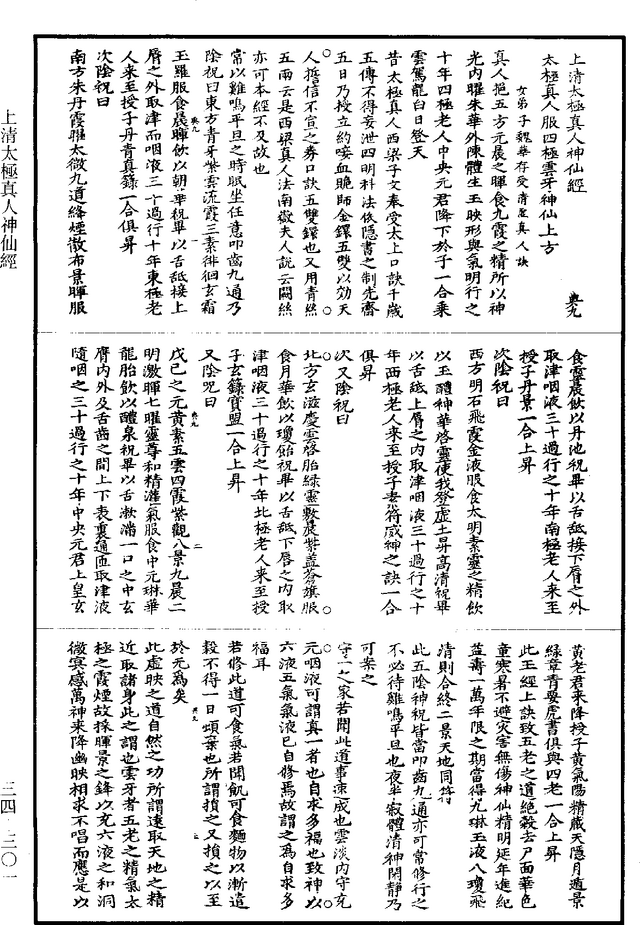 上清太極真人神仙經
太極真人服四極雲牙神仙上方
女弟子魏華存受清虛真人訣
典九
真人挹五方元晨之暉食九霞之精所以神
光內曜朱華外陳體生玉映形與氣明行之
十年四極老人中央元君降下於子一合乘
雲駕龍白日登天
昔太極真人西梁子文奉受太上口訣千歲
五傳不得妄泄四明科法依隱書之制先齋
五日乃授立約唼血跪師金鐶五雙以効天
人誓信不宣之券口訣五雙鐶也又用青絲
五兩云是西梁真人法南嶽夫人說云闕絲
亦可本經不及故也
常以雞鳴平旦之時眠坐任意叩齒九通乃
陰祝曰東方青牙紫雲流霞三素徘徊玄霜
玉羅服食晨暉飲以朝華祝畢以舌舐接上
脣之外取津而咽液三十過行十年東極老
人來至授子丹青真籙一合俱昇
次陰祝曰
南方朱丹霞曜太微九道絳煙散布景暉服
食靈晨飲以丹池祝畢以舌舐接下脣之外
取津咽液三十過行之十年南極老人來至
授子丹景一合上昇
次陰祝曰
西方明石飛霞金液服食太明素靈之精飲
以玉醴神華啓靈使我登虛上昇高清祝畢
以舌舐上脣之內取津咽液三十過行之十
年西極老人來至授子素符威神之訣一合
俱昇
次又陰祝曰
北方玄滋慶雲啓胎綠靈敷晨紫蓋蒼旗服
食月華飲以瓊飴祝畢以舌舐下脣之內取
津咽液三十過行之十年北極老人來至授
子玄籙寶盟一合上昇
又陰呪曰
戊己之元黃素五雲四霞紫觀八景九晨二
明激暉七曜靈尊和精灌氣服食中元琳華
龍胎飲以醴泉祝畢以舌漱滿一口之中玄
膺內外及舌齒之間上下表裏通匝取津液
隨咽之三十過行之十年中央元君上皇玄
黃老君來降授子黃氣陽精藏天隱月遁景
綠章青要虎書俱與四老一合上昇
此玉經上訣致五老之道絕穀去尸面華色
童寒暑不避災害無傷神仙精明延年進紀
益壽一萬年限之期當得九琳玉液八瓊飛
清則合終二景天地同符
此五陰神祝皆當叩齒九通亦可常修行之
不必待雞鳴平旦也夜半寂體清神閑靜乃
可案之
守一之家若聞此道事速成也雲淡內守充
元咽液可謂真一者也自求多福也致神以
六液五氣氣液已自修焉故謂之為自求多
福耳
若修此道可食氣若閒飢可食麵物以漸遣
穀不得一日頓棄也所謂損之又損之以至
於元為矣
此虛映之道自然之功所謂遠取天地之精
近取諸身此之謂也雲牙者五老之精氣太
極之霞煙故採暉景之鋒以充六液之和洞
微冥感萬神來降幽映相求不唱而應是以
上清太極真人神仙經
三四-三〇一